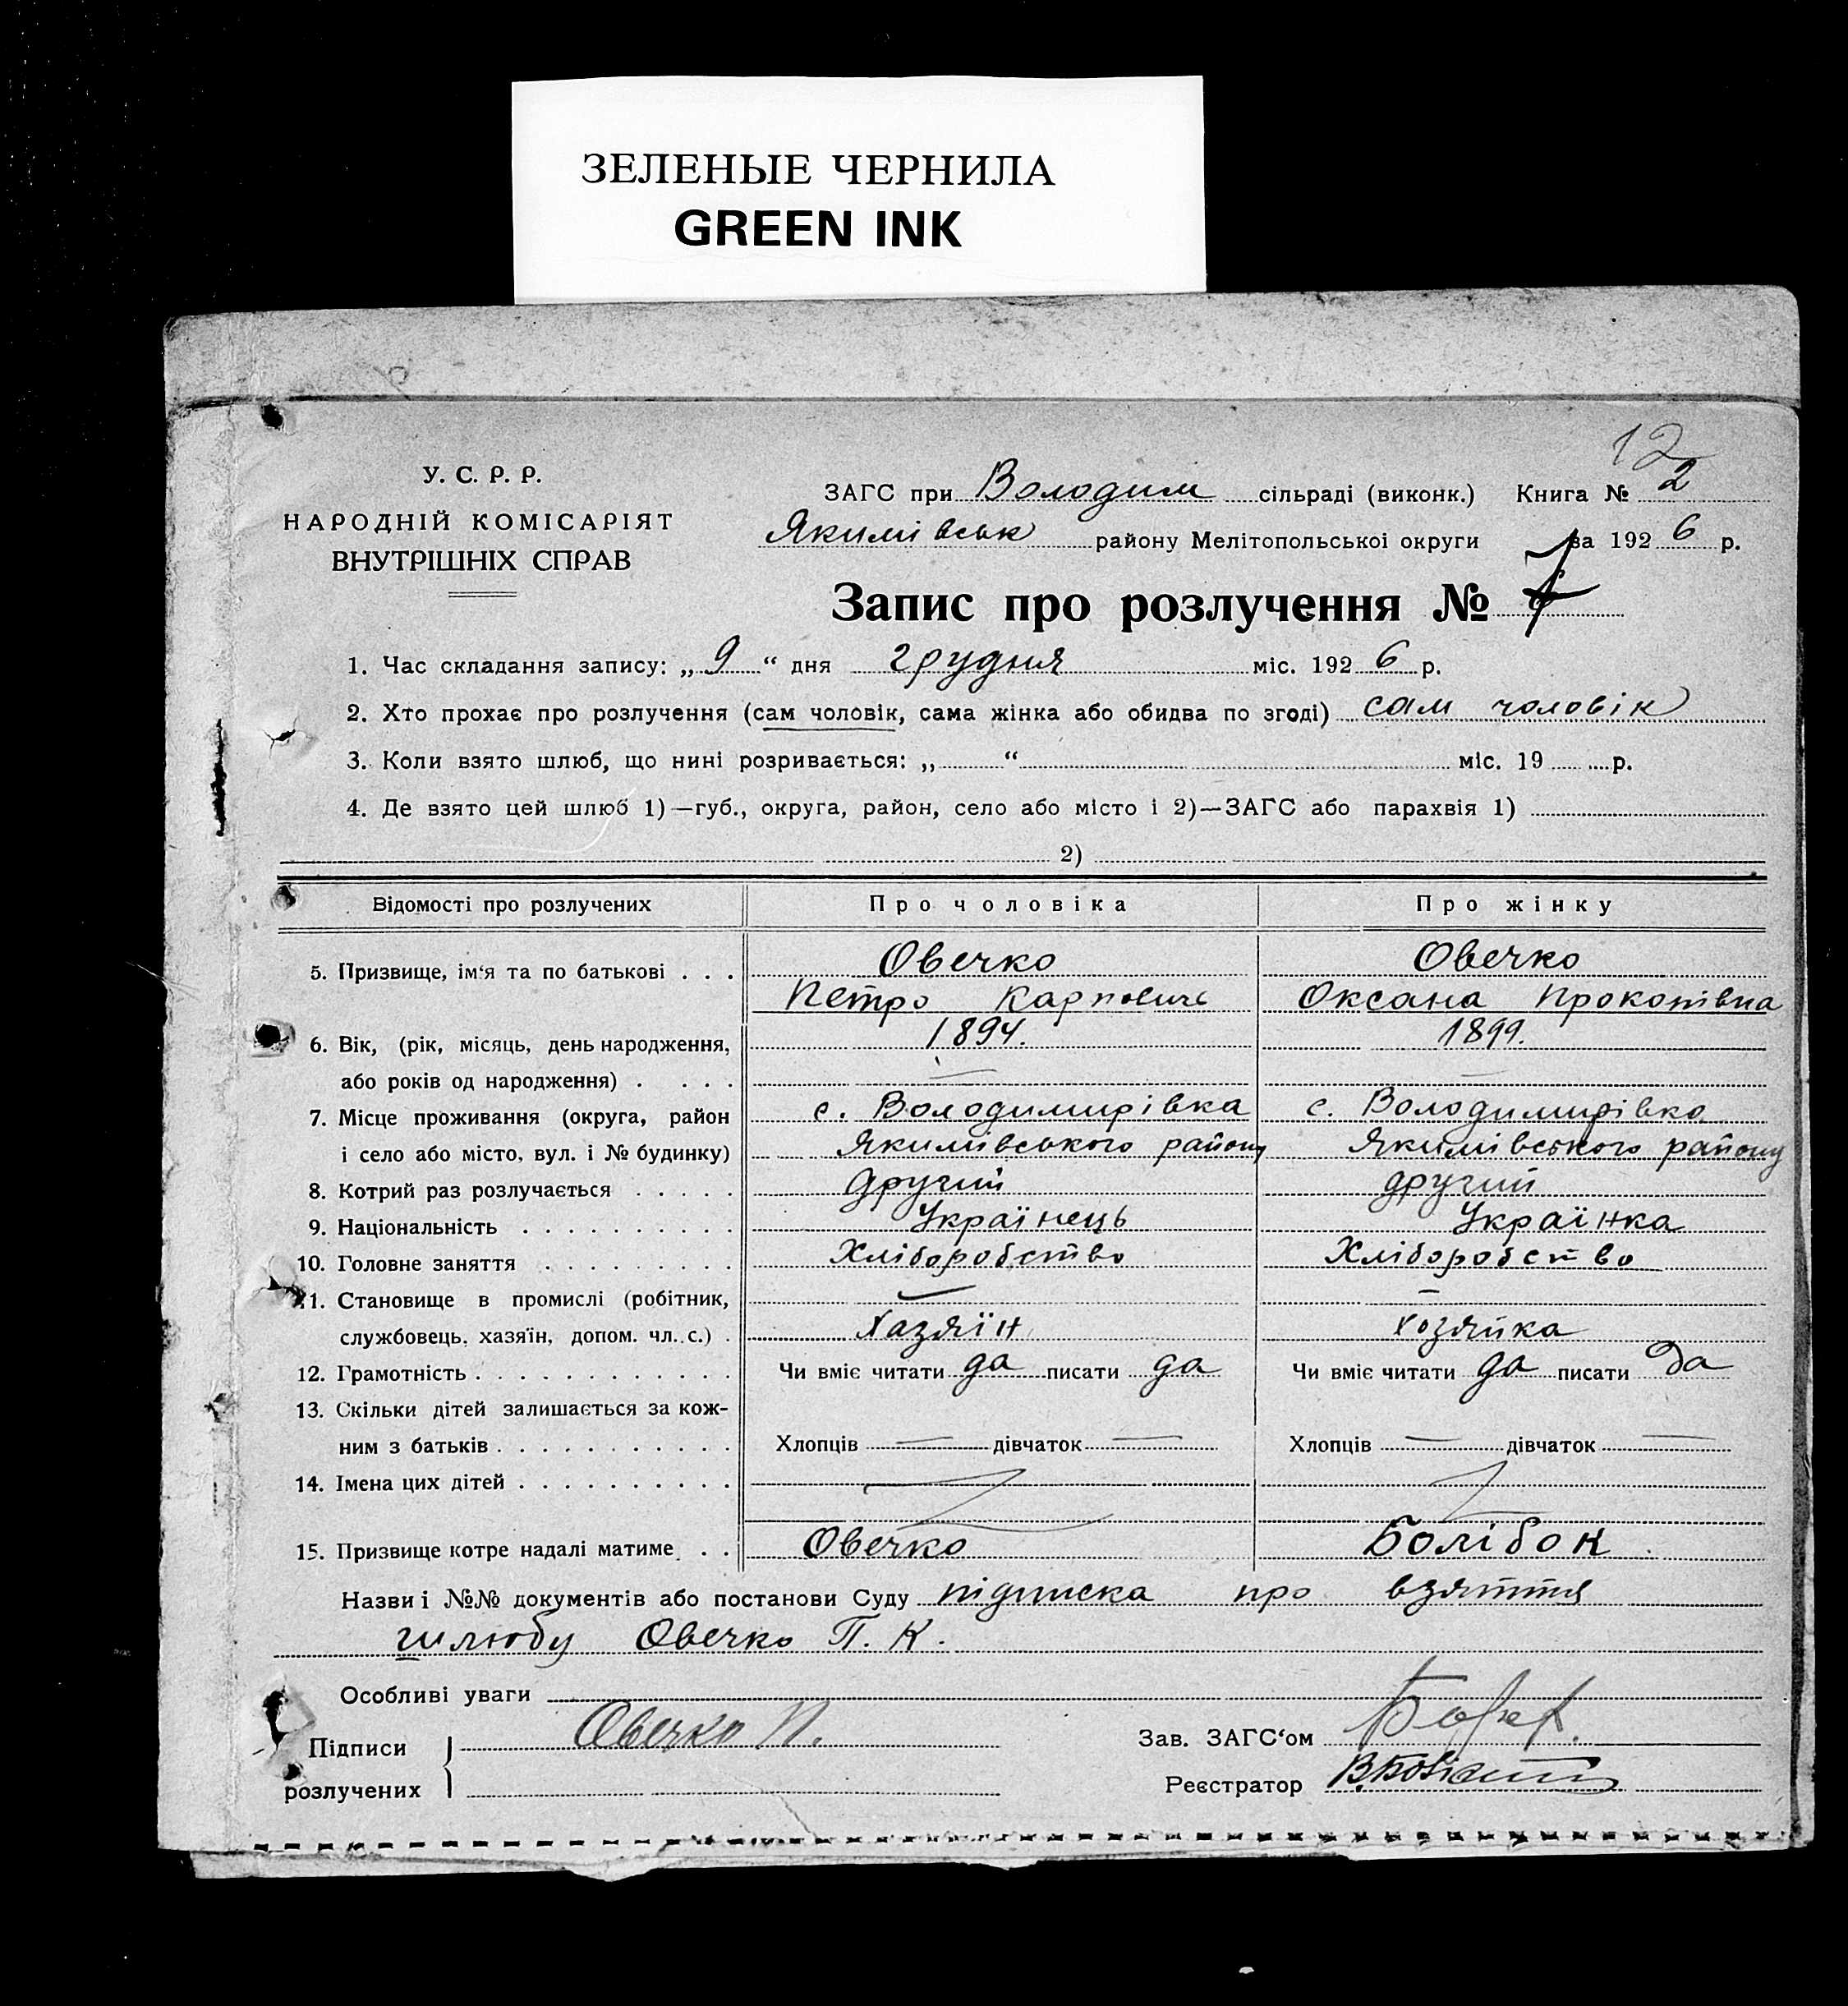 ЗЕЛЕНЫЕ ЧЕРНИЛА
GREEN INK
12
У. С. Р. Р.
НАРОДНІЙ КОМІСАРІЯТ
ВНУТРІШНІХ СПРАВ
ЗАГС при Володим сільраді (виконк.) Книга № 2
Якимівськ району Мелітопольської округи за 1926 р.
Запис про розлучення № 7
1. Час складання запису: „9“ дня грудня міс. 1926 р.
2. Хто прохає про розлучення (сам чоловік, сама жінка або обидва по згоді) сам чоловік
3. Коли взято шлюб, що нині розривається: „ “ міс. 19 р.
4. Де взято цей шлюб 1)—губ., округа, район, село або місто і 2)—ЗАГС або парахвія 1)
2)
Відомості про розлучених Про чоловіка Про жінку
5. Призвище, ім‘я та по батькові . . . Овечко Овечко
Петро Карпович Оксана Прокопівна
6. Вік, (рік, місяць, день народження, 1894. 1899.
або років од народження) . . . . — —
7. Місце проживання (округа, район с. Володимирівка с. Володимирівка
і село або місто, вул. і № будинку) Якимівського району Якимівського району
8. Котрий раз розлучається . . . . . другий другий
9. Національність . . . . . . . . . . Українець Українка
10. Головне заняття . . . . . . . . . Хліборобство Хліборобство
11. Становище в промислі (робітник, — —
службовець, хазяїн, допом. чл. с.) . Хазяїн Хозяйка
12. Грамотність . . . . . . . . . . . . Чи вміє читати да писати да Чи вміє читати да писати да
13. Скільки дітей залишається за кож-
ним з батьків . . . . . . . . . . . Хлопців — дівчаток — Хлопців — дівчаток —
14. Імена цих дітей . . . . . . . . . .
15. Призвище котре надалі матиме . . Овечко Болібок
Назви і №№ документів або постанови Суду підписка про взяття
шлюбу Овечко П. К.
Особливі уваги
Підписи Овечко П. Зав. ЗАГС‘ом
розлучених Реєстратор